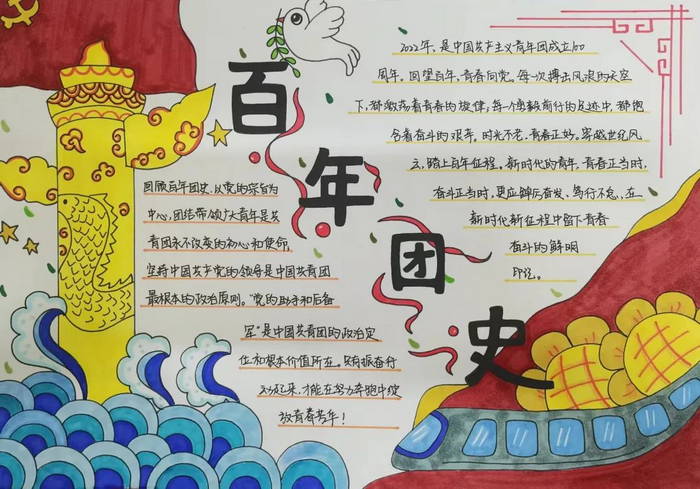 百年团史
2022年，是中国共产主义青年团成立100
周年。回望百年，青春向党。每一次搏击风浪的天空
下，都激荡着青春的旋律，每一个勇毅前行的足迹中，都饱
含着奋斗的艰辛。时光不老，青春正好。穿越世纪风
云，踏上百年征程。新时代的青年，青春正当时，
奋斗正当时，更应踔厉奋发、笃行不怠，在
新时代新征程中留下青春
奋斗的鲜明
印记。
回顾百年团史，以党的宗旨为
中心，团结带领广大青年是共
青团永不改变的初心和使命，
坚持中国共产党的领导是中国共青团
最根本的政治原则。“党的助手和后备
军”是中国共青团的政治定
位和根本价值所在。只有振奋行
动起来，才能在努力奔跑中绽
放青春芳华！